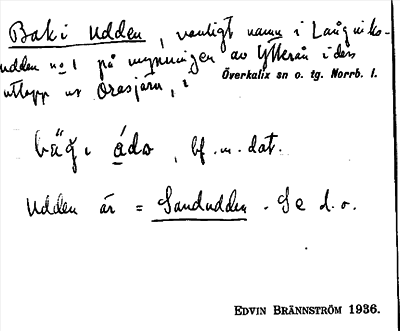 Bak i udden, vanligt namn i Långviks-
udden no 1 på mynningen av Ytterån i dess
utlopp ur Orasjärv, i Överkalix sn o. tg. Norrb. l.
bäǧ i ádo, bf. m. dat.
Udden är = Sandudden. Se d. o.
EDVIN BRÄNNSTRÖM 1936.